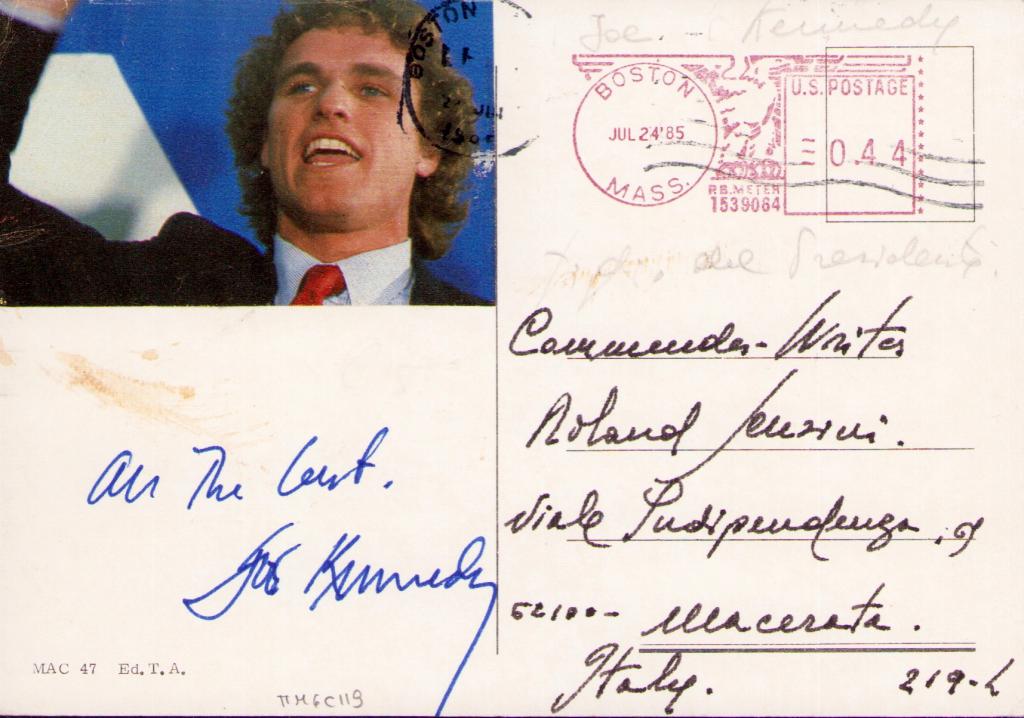 BOSTON
Joe - Kennedy
BOSTON
JUL 24'85
MASS.
U.S. POSTAGE
0.44
P.B. METER
1539064
del Presidente.
Commender-Writer
Roland
Viale Indipendenza, 9
62100- Macerata.
Italy.
219-L
All The best.
Joe Kennedy
MAC 47 Ed. T. A.